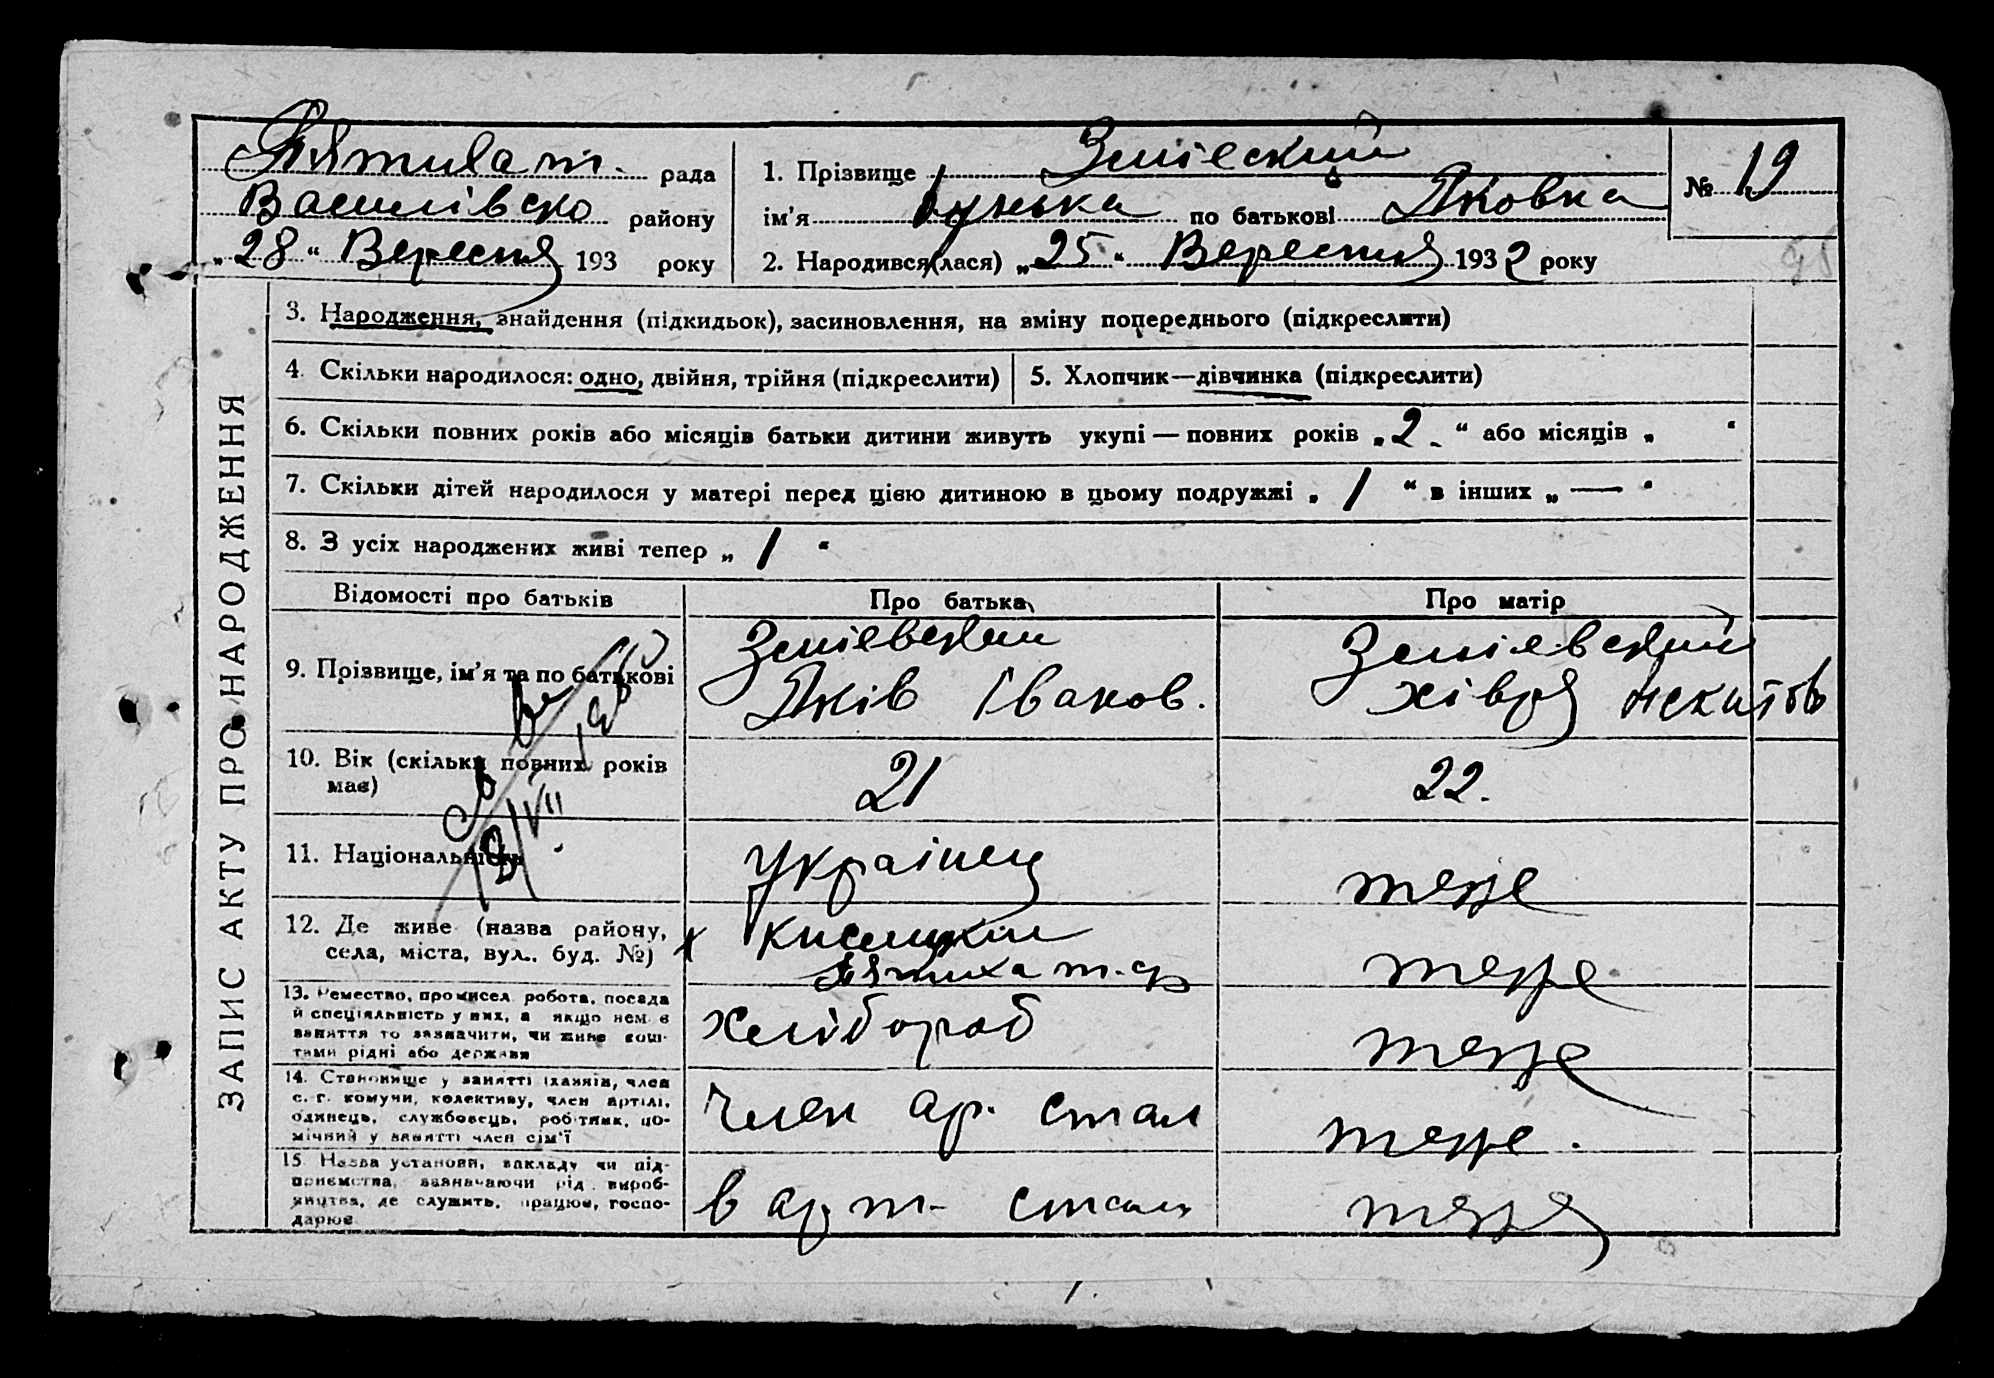 Пятихат. рада
Василівско району
„28“ Вересня 193 року
1. Прізвище Зміеский
ім'я по батькові Яковна
2. Народився(лася) „25“ Вересня 1932 року
№ 19
ЗАПИС АКТУ ПРО НАРОДЖЕННЯ
3. Народження, знайдення (підкидьок), засиновлення, на зміну попереднього (підкреслити)
4. Скільки народилося: одно, двійня, трійня (підкреслити)
5. Хлопчик—дівчинка (підкреслити)
6. Скільки повних років або місяців батьки дитини живуть укупі — повних років „2“ або місяців „ “
7. Скільки дітей народилося у матері перед цією дитиною в цьому подружжі „1“ в інших „—“
8. З усіх народжених живі тепер „1“
Відомості про батьків
Про батька
Про матір
9. Прізвище, ім'я та по батькові
Зміевский
Яків Іванов.
Зміевский
Хівря
10. Вік (скільки повних років має)
21
22.
11. Національність
Українец
теже
12. Де живе (назва району,
села, міста, вул., буд. №)
Пятиха
теже
13. Ремество, промисел, робота, посада
й спеціяльність у них, а якщо нема
заняття то зазначити, чи живе кош-
тами рідні або держави
Хлібороб
теже
14. Становище у занятті (хазяїн, член
с.-г. комуни, колективу, член артілі,
одинець, службовець, робітник, по-
мічний у занятті член сім'ї
Член ар. стал
теже.
15. Назва установи, закладу чи під-
приємства, зазначаючи рід вироб-
ництва, де служить, працює, госпо-
дарює
в арт. стал
теже